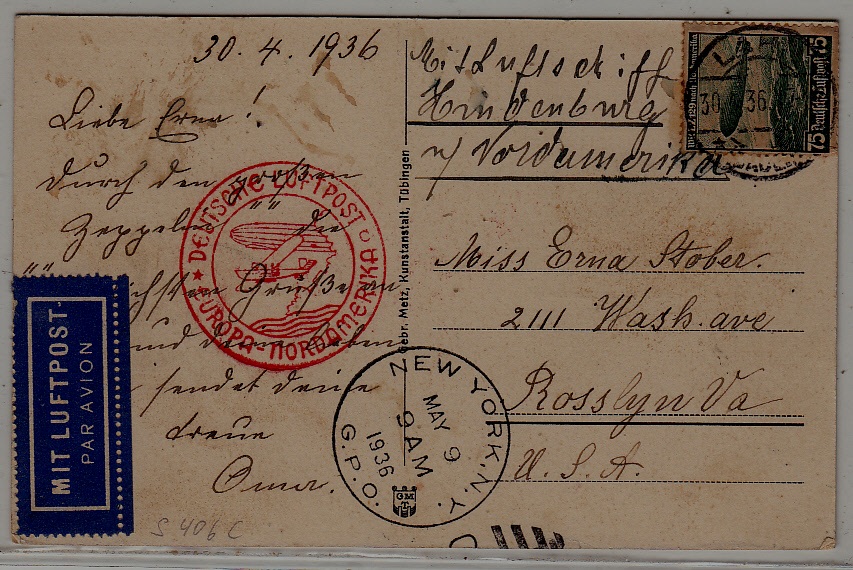 30. 4. 1936
Liebe Erna!
durch den großen
Zeppelin die
Grüße an
und deine Lieben
sendet deine
treue
Oma.
MIT LUFTPOST
PAR AVION
DEUTSCHE LUFTPOST
EUROPA-NORDAMERIKA
Gebr. Metz, Kunstanstalt, Tübingen
Mit Luftschiff
Hindenburg
n/ Nordamerika
30 36
75 Deutsche Luftpost 75
Miss Erna Stober.
2111 Wash. ave
Rosslyn Va
U. S. A.
NEW YORK, N.Y.
MAY 9
9 AM
1936
G.P.O.
S 406 C